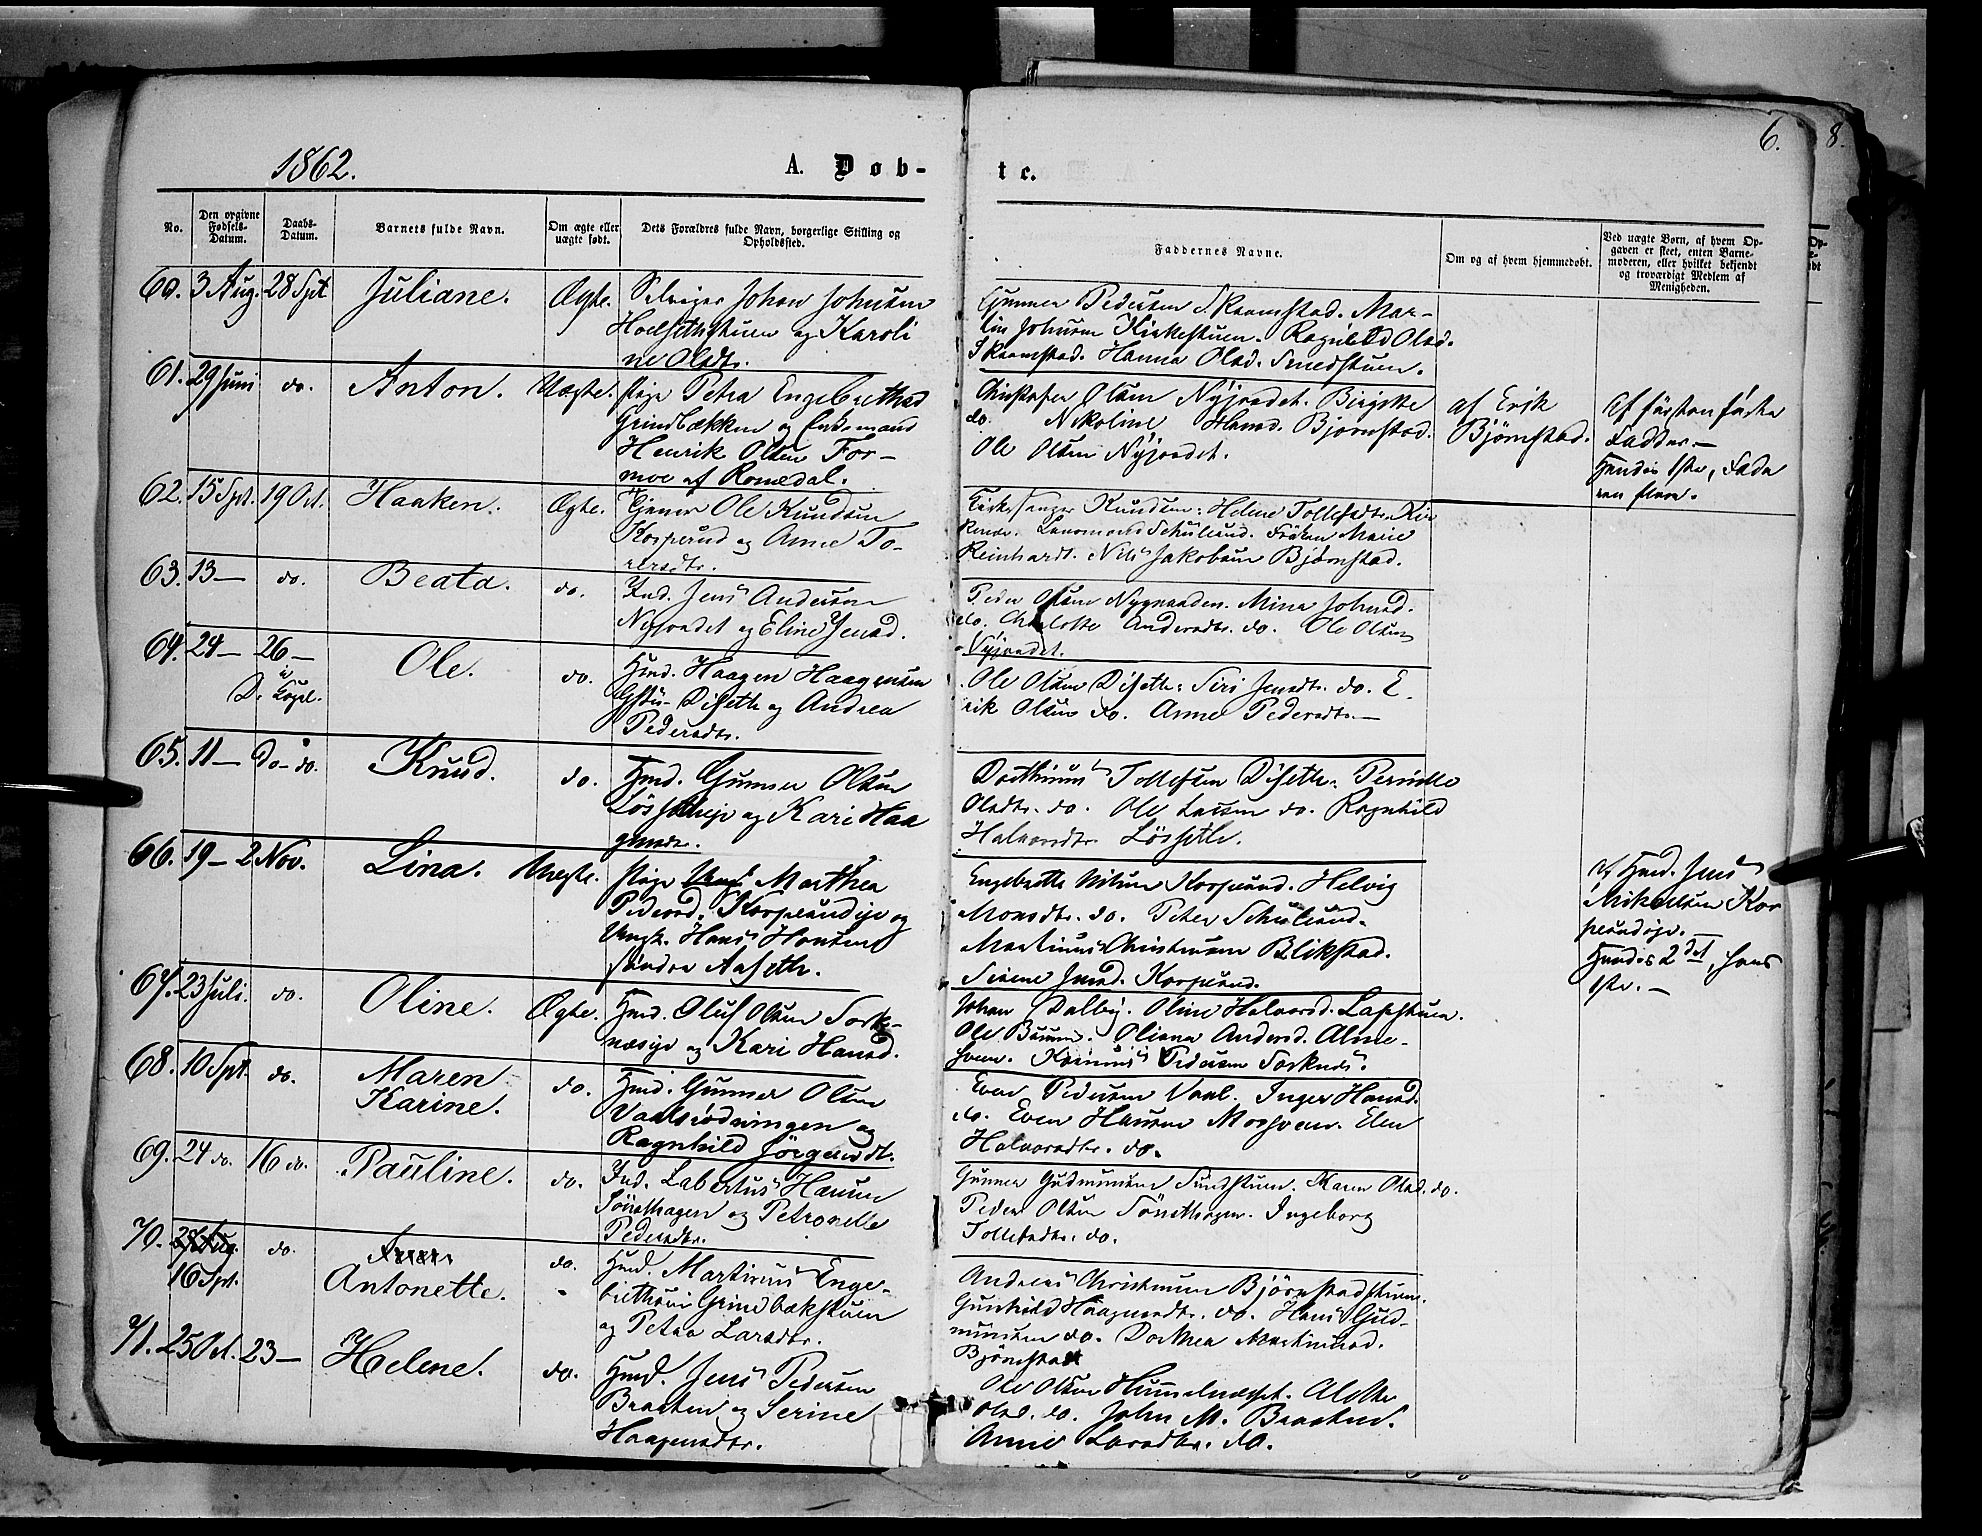 6. 8.
1862. A. Døb- te.
No.
Den opgivne Fødsels-Datum.
Daabs-Datum.
Barnets fulde Navn.
Om ægte eller uægte født.
Dets Forældres fulde Navn, borgerlige Stilling og Opholdssted.
Faddernes Navne.
Om og af hvem hjemmedøbt.
Ved uægte Børn, af hvem Opgaven er skeet, enten Barnemoderen, eller hvilket bekjendt og troværdigt Medlem af Menigheden.
60. 3 Aug. 28 Spt Juliane. Ægte. Selveger Johan Johnsen
Hoelsethstuen og Karoli
ne Olsdtr.
Gunner Pedersen Skramstad. Mar-
tin Johnsen Kirkestuen. Ragnild Olsd.
Skramstad. Hanna Olsd. Smedstuen.
61. 29 Juni do. Anton. Uægte. Pige Petra Engebrethsd
Grindbækken og Enkemand
Henrik Olsen For-
moe af Romedal.
Christofer Olsen Nyjordet. Birgitte
do. Nikoline Hansd. Bjørnstad.
Ole Olsen Nyjordet.
af Erik
Bjørnstad.
Af førstanførte
Fadder.—
Hendes 1ste, Fade
ren flere.
62. 15 Spt. 19 Oct. Haaken. Ægte. Tjener Ole Knudsen
Korperud og Anne To-
rersdtr.
Kirkesanger Knudsen. Helene Tollefsdtr. Kir
Lensmand Schulerud. Frøken Marie
Reinhardt. Nils Jakobsen Bjørnstad.
63. 13— do. Beata. do. Ind. Jens Andersen
Nyjordet og Eline Jensd.
Peder Olsen Nygaarden. Mina Johnsd.
do. Charlotte Andersdtr. do. Ole Olsen
Nyjordet.
64. 24— 26— i D. Kapel. Ole. do. Hmd. Haagen Haagensen
Diseth og Andrea
Pedersdtr.
Ole Olsen Diseth. Siri Jensdtr. do. E-
rik Olsen do. Anne Pedersdtr.—
65. 11— Do- do. Knud. do. Hmd. Gunner Olsen
Løssetheje og Kari Haa
gensdtr.
Tollefsen Diseth. Pernille
Olsdtr. do. Ole Larsen do. Ragnhild
Halvorsdtr Løsseth.
66. 19— 2 Nov. Lina. Uægte. Pige Marthea
Pedersd. Korperudeje og
Ungk. Hans Hansen
søndre Aaseth.
Engebrette Nilsen Korperud. Helvig
Monsdtr. do. Peter Schulerud.
Martinus Christensen Blikstad.
Serene Jensd. Korperud.
af Hmd. Jens
Mikkelsen Kor
perudeje.
Hendes 2det, hans
1ste.—
67. 23 Juli. do. Oline. Ægte. Hmd. Oluf Olsen Sork-
næseje og Kari Hansd.
Johan Dalby. Oline Halvorsd. Lapstuen.
Ole Oliana Andersd. Alme-
hven. Pedersen Sorknes.
68. 10 Spt. do. Maren
Karine. do. Hmd. Gunner Olsen
Vaalsrødningen og
Ragnhild Jørgensdt.
Even Pedersen Vaal. Inger Hansd.
do. Even Hansen Morsveen. Elen
Halvorsdtr. do.
69. 24 do. 16 do. Pauline. do. Ind. Labertus Hansen
Sønsthagen og Petronelle
Pedersdtr.
Gunner Gudmunsen Sundstuen. Karen Olsd. do.
Peder Olsen Sønsthagen. Ingeborg
Tollefsdtr. do.
70. 16 Spt. do. Antonette. do. Hmd. Martinus Enge-
brethsen Grindbækstuen
og Petra Larsdtr.
Andreas Christensen Bjørnstadstuen.
Gunhild Haagensdtr. do. Hans Gud-
munsen do. Dorthea Martinusd.
Bjørnstad
71. 25 Oct. 23— Helene. do. Hmd. Jens Pedersen
Braaten og Serine
Haagensdtr.
Ole Olsen Hummelnæsset. Alette
Olsd. do. John M. Braaten.
Anne Larsdtr. do.